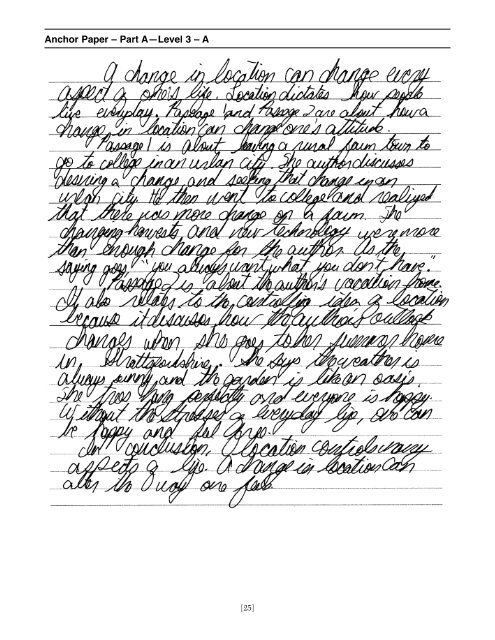 Anchor Paper – Part A—Level 3 – A
A change in location can change every
aspect of one's life. Location dictates how people
live everyday. Passage 1 and Passage 2 are about how a
change in location can change one's attitude.
Passage 1 is about leaving a rural farm town to
go to college in an urban city. The author discusses
desiring a change and seeking that change in an
urban city. He then went to college and realized
that there was more change on a farm. The
changing harvests and new technology were more
than enough change for the author. As the
saying goes "you always want what you don't have".
Passage 2 is about the author's vacation home.
It also relates to the controlling idea of location
because it discusses how the author's outlook
changes when she goes to her summer home
in. She says the weather is
always sunny and the garden is like an oasis.
The trees hang perfectly and everyone is happy
without the stresses of everyday life, one can
be happy and feel
In conclusion, location controls many
aspects of life. A change in location can
alter the way one feels.
[25]